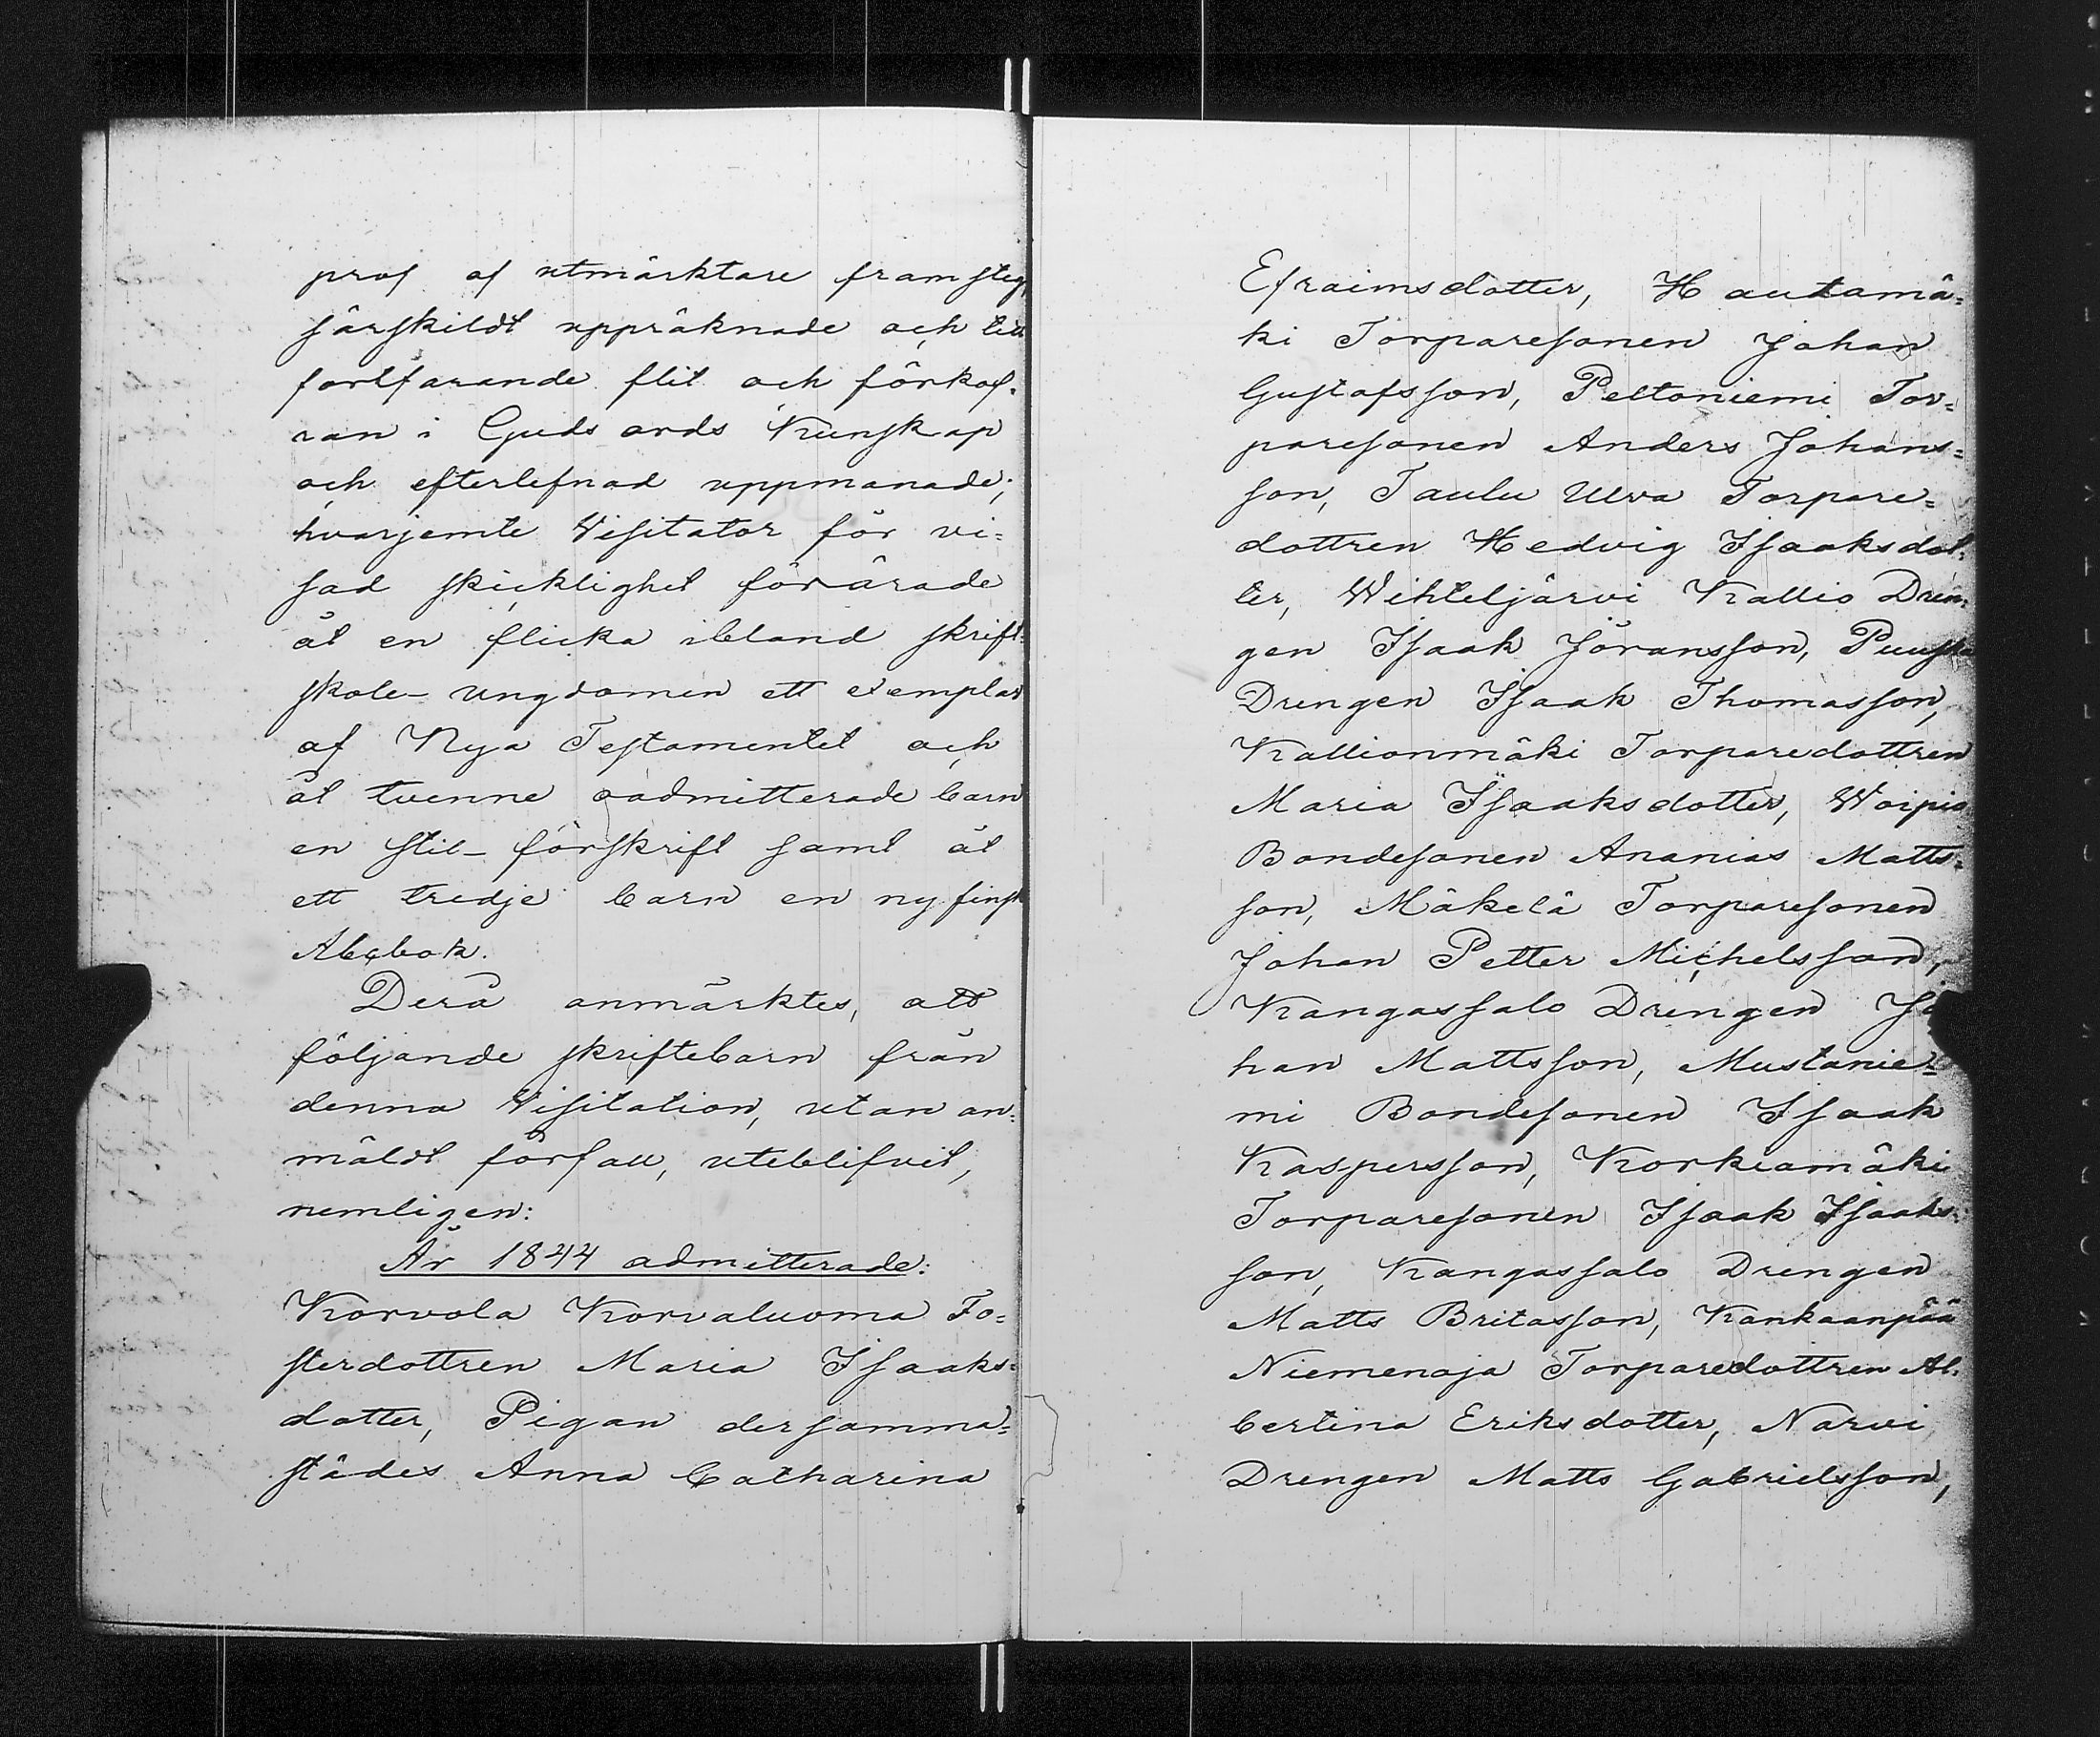 prof af utmärktare framsteg,
särskildt uppräknade och till
fortfarande flit och förkof-
ran i Guds ords Kunskap
och efterlefnad uppmanade;
hvarjemte Visitator för vi=
sad skicklighet förärade
åt en flicka ibland skrift-
skole-ungdomen ett exemplar
af Nya Testamentet och
åt tvenne oadmitterade barn
en stil-förskrift samt åt
ett tredje barn en ny finsk
Abcbok.
Derå anmärktes, att
följande skriftebarn från
denna Visitation, utan an=
mäldt förfall, uteblifvit,
nemligen:
År 1844 admitterade:
Korvola Korvaluoma Fo=
sterdottren Maria Isaaks=
dotter, Pigan dersamma=
städes Anna Catharina
Efraimsdotter, Hautamä=
ki Torparesonen Johan
Gustafsson, Peltoniemi Tor=
paresonen Anders Johans=
son, Taulu Ulva Torpare=
dottren Hedvig Isaaksdot=
ter, Wihteljärvi Kallio Drän=
gen Isaak Jöransson, Puuska
Drengen Isaak Thomasson,
Kallionmäki Torparedottren
Maria Isaaksdotter, Woipio
Bondesonen Ananias Matts=
son, Mäkelä Torparesonen
Johan Petter Michelsson,
Kangassalo Drengen Jo
han Mattsson, Mustanie=
mi Bondesonen Isaak
Kaspersson, Korkeamäki
Torparesonen Isaak Isaaks=
son, Kangassalo Drengen
Matts Britasson, Kankaanpää
Niemenoja Torparedottren Al=
bertina Eriksdotter, Narvi
Drengen Matts Gabrielsson,